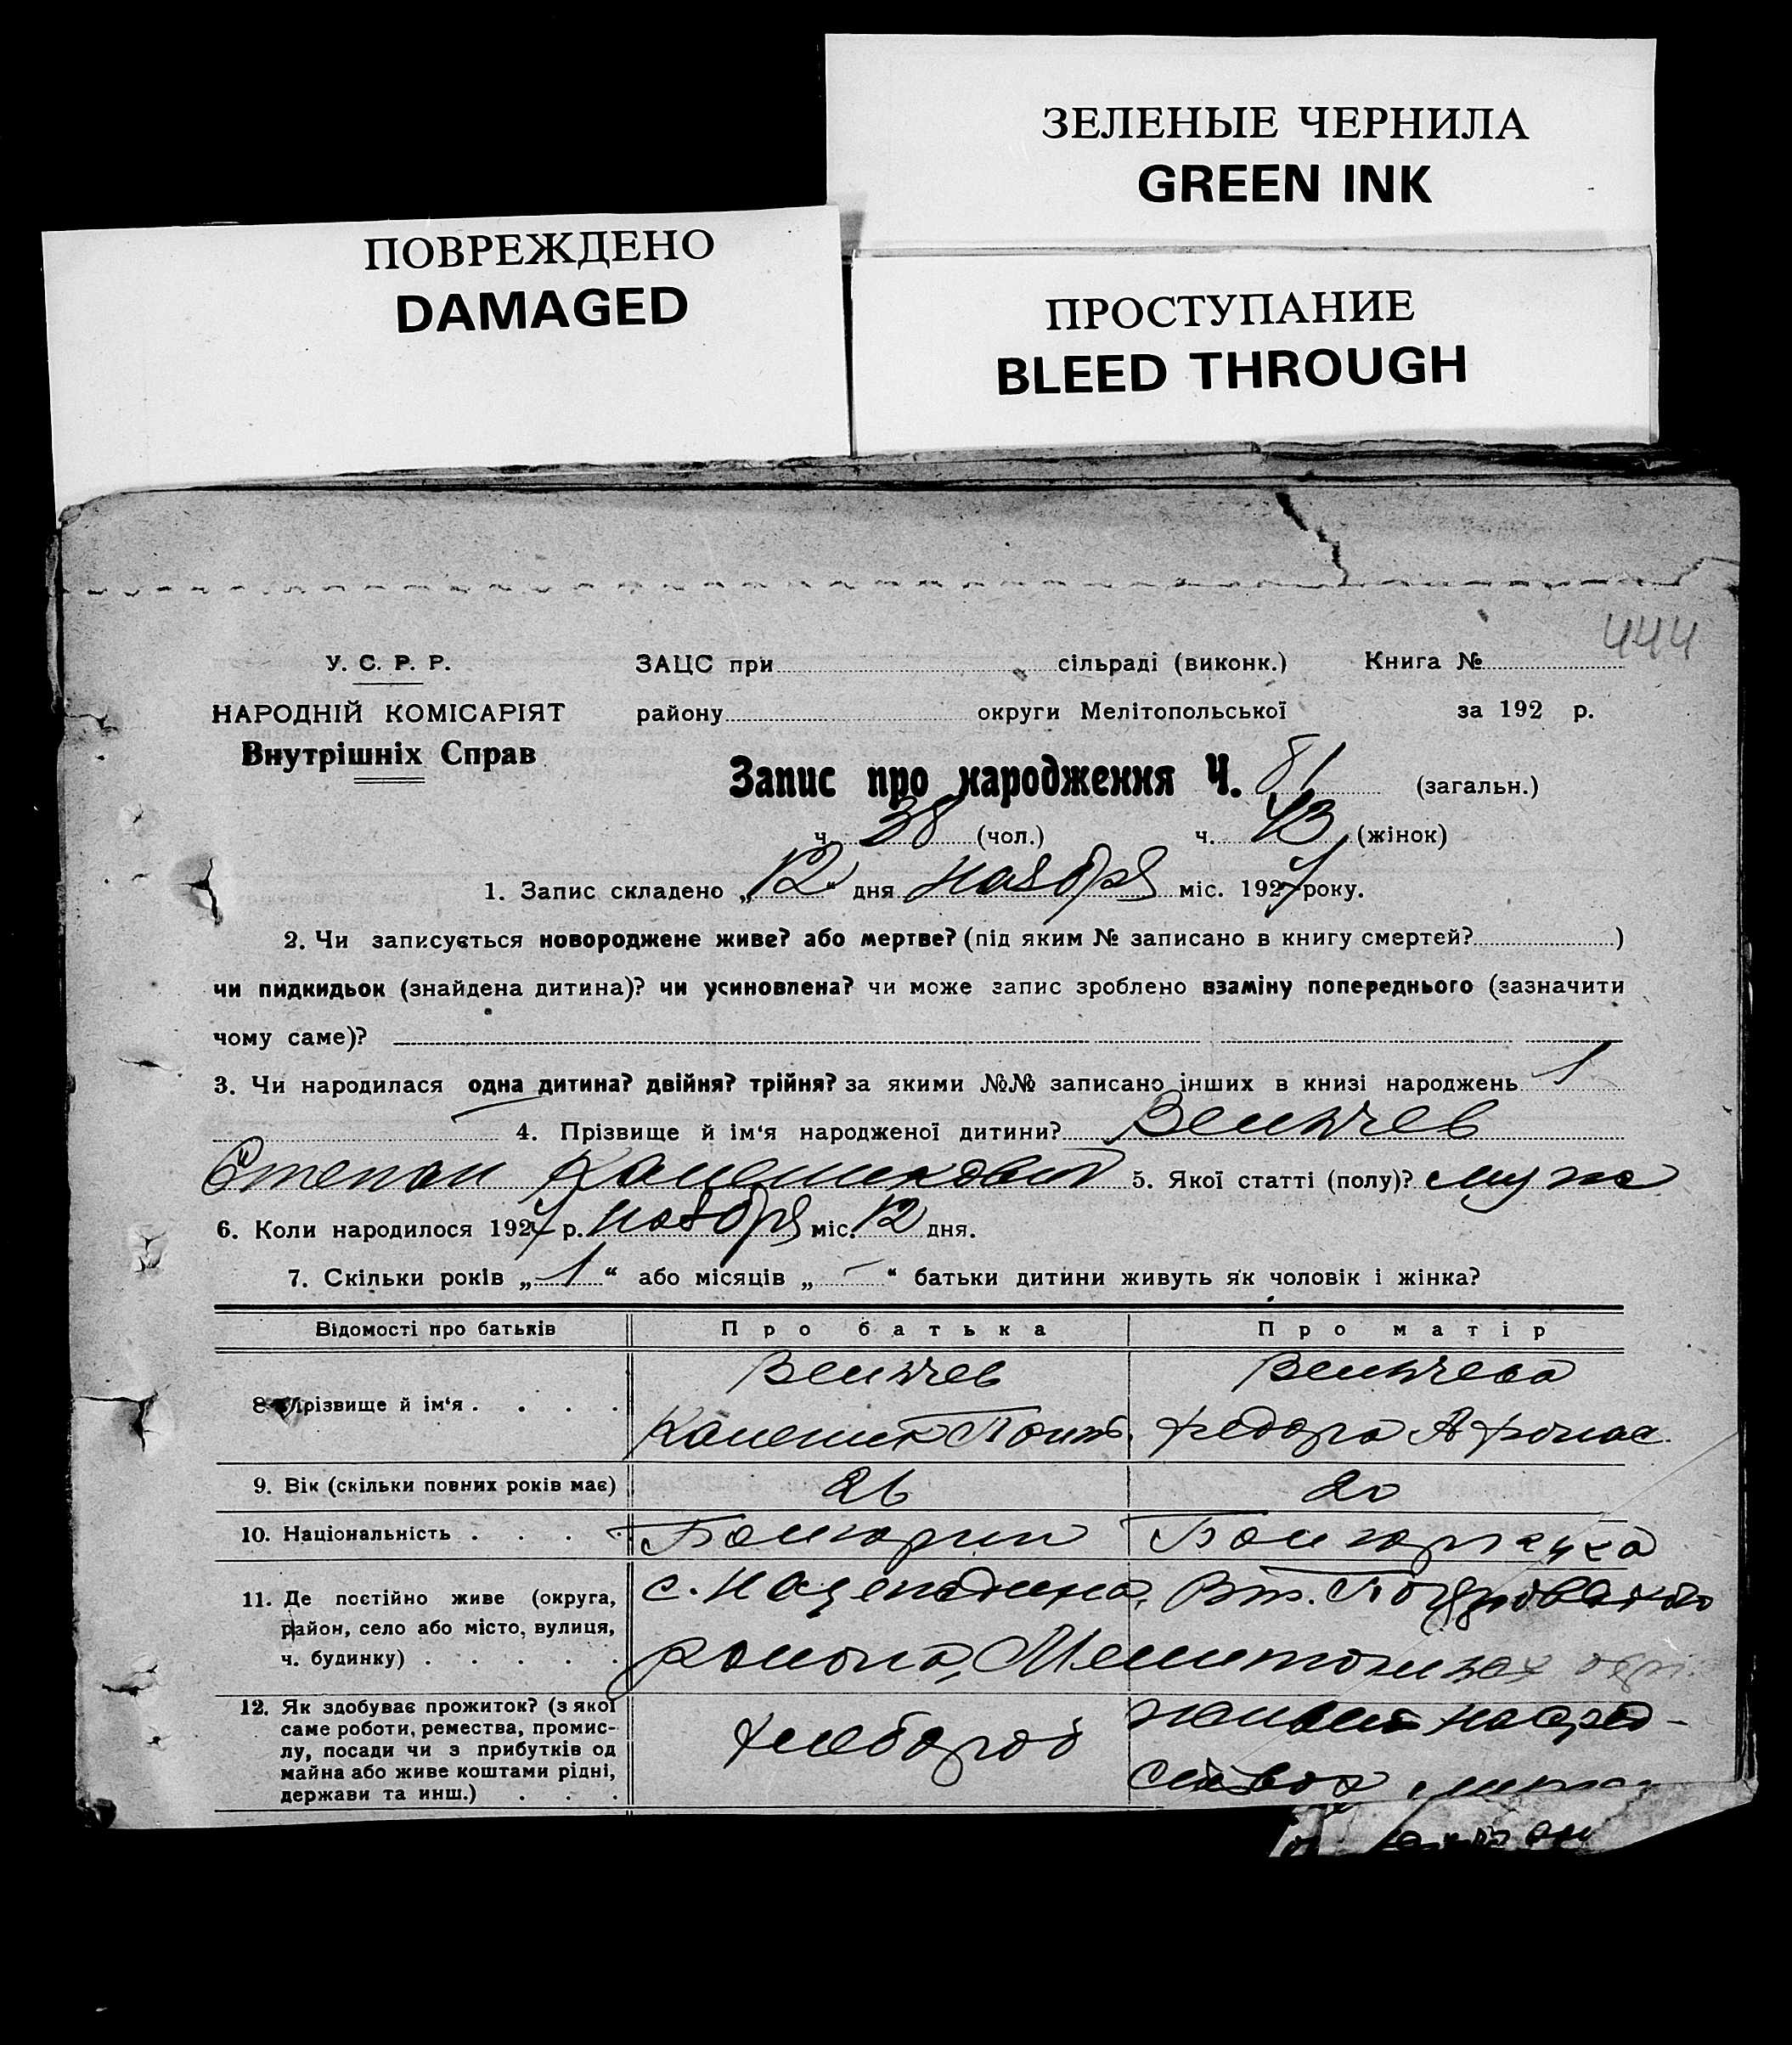 ЗЕЛЕНЫЕ ЧЕРНИЛА
GREEN INK
ПОВРЕЖДЕНО
DAMAGED
ПРОСТУПАНИЕ
BLEED THROUGH
444
У. С. Р. Р.
НАРОДНІЙ КОМІСАРІЯТ
Внутрішніх Справ
ЗАЦС при сільраді (виконк.) Книга №
району округи Мелітопольської за 192 р.
Запис про народження Ч. 81 (загальн.)
ч. 38 (чол.) ч. 43 (жінок)
1. Запис складено „12“ дня ноября міс. 1927 року.
2. Чи записується новороджене живе? або мертве? (під яким № записано в книгу смертей? )
чи пидкидьок (знайдена дитина)? чи усиновлена? чи може запис зроблено взаміну попереднього (зазначити
чому саме)?
3. Чи народилася одна дитина? двійня? трійня? за якими №№ записано інших в книзі народжень 1
4. Прізвище й ім‘я народженої дитини? Велчев
Степан 5. Якої статті (полу)? муж
6. Коли народилося 1927 р. ноября міс. 12 дня.
7. Скільки років „1“ або місяців „-“ батьки дитини живуть як чоловік і жінка?
Відомості про батьків Про батька Про матір
8. Прізвище й ім‘я . . . . Велчев Велчева
Федора Афонас.
9. Вік (скільки повних років має) 26 20
10. Національність . . . . Болгарин Болгарка
11. Де постійно живе (округа,
район, село або місто, вулиця,
ч. будинку) . . . . .
с.
района, Мелитопольск окр.
12. Як здобуває прожиток? (з якої
саме роботи, ремества, промис-
лу, посади чи з прибутків од
майна або живе коштами рідні,
держави та инш.) . . .
хлебороб
на сред-